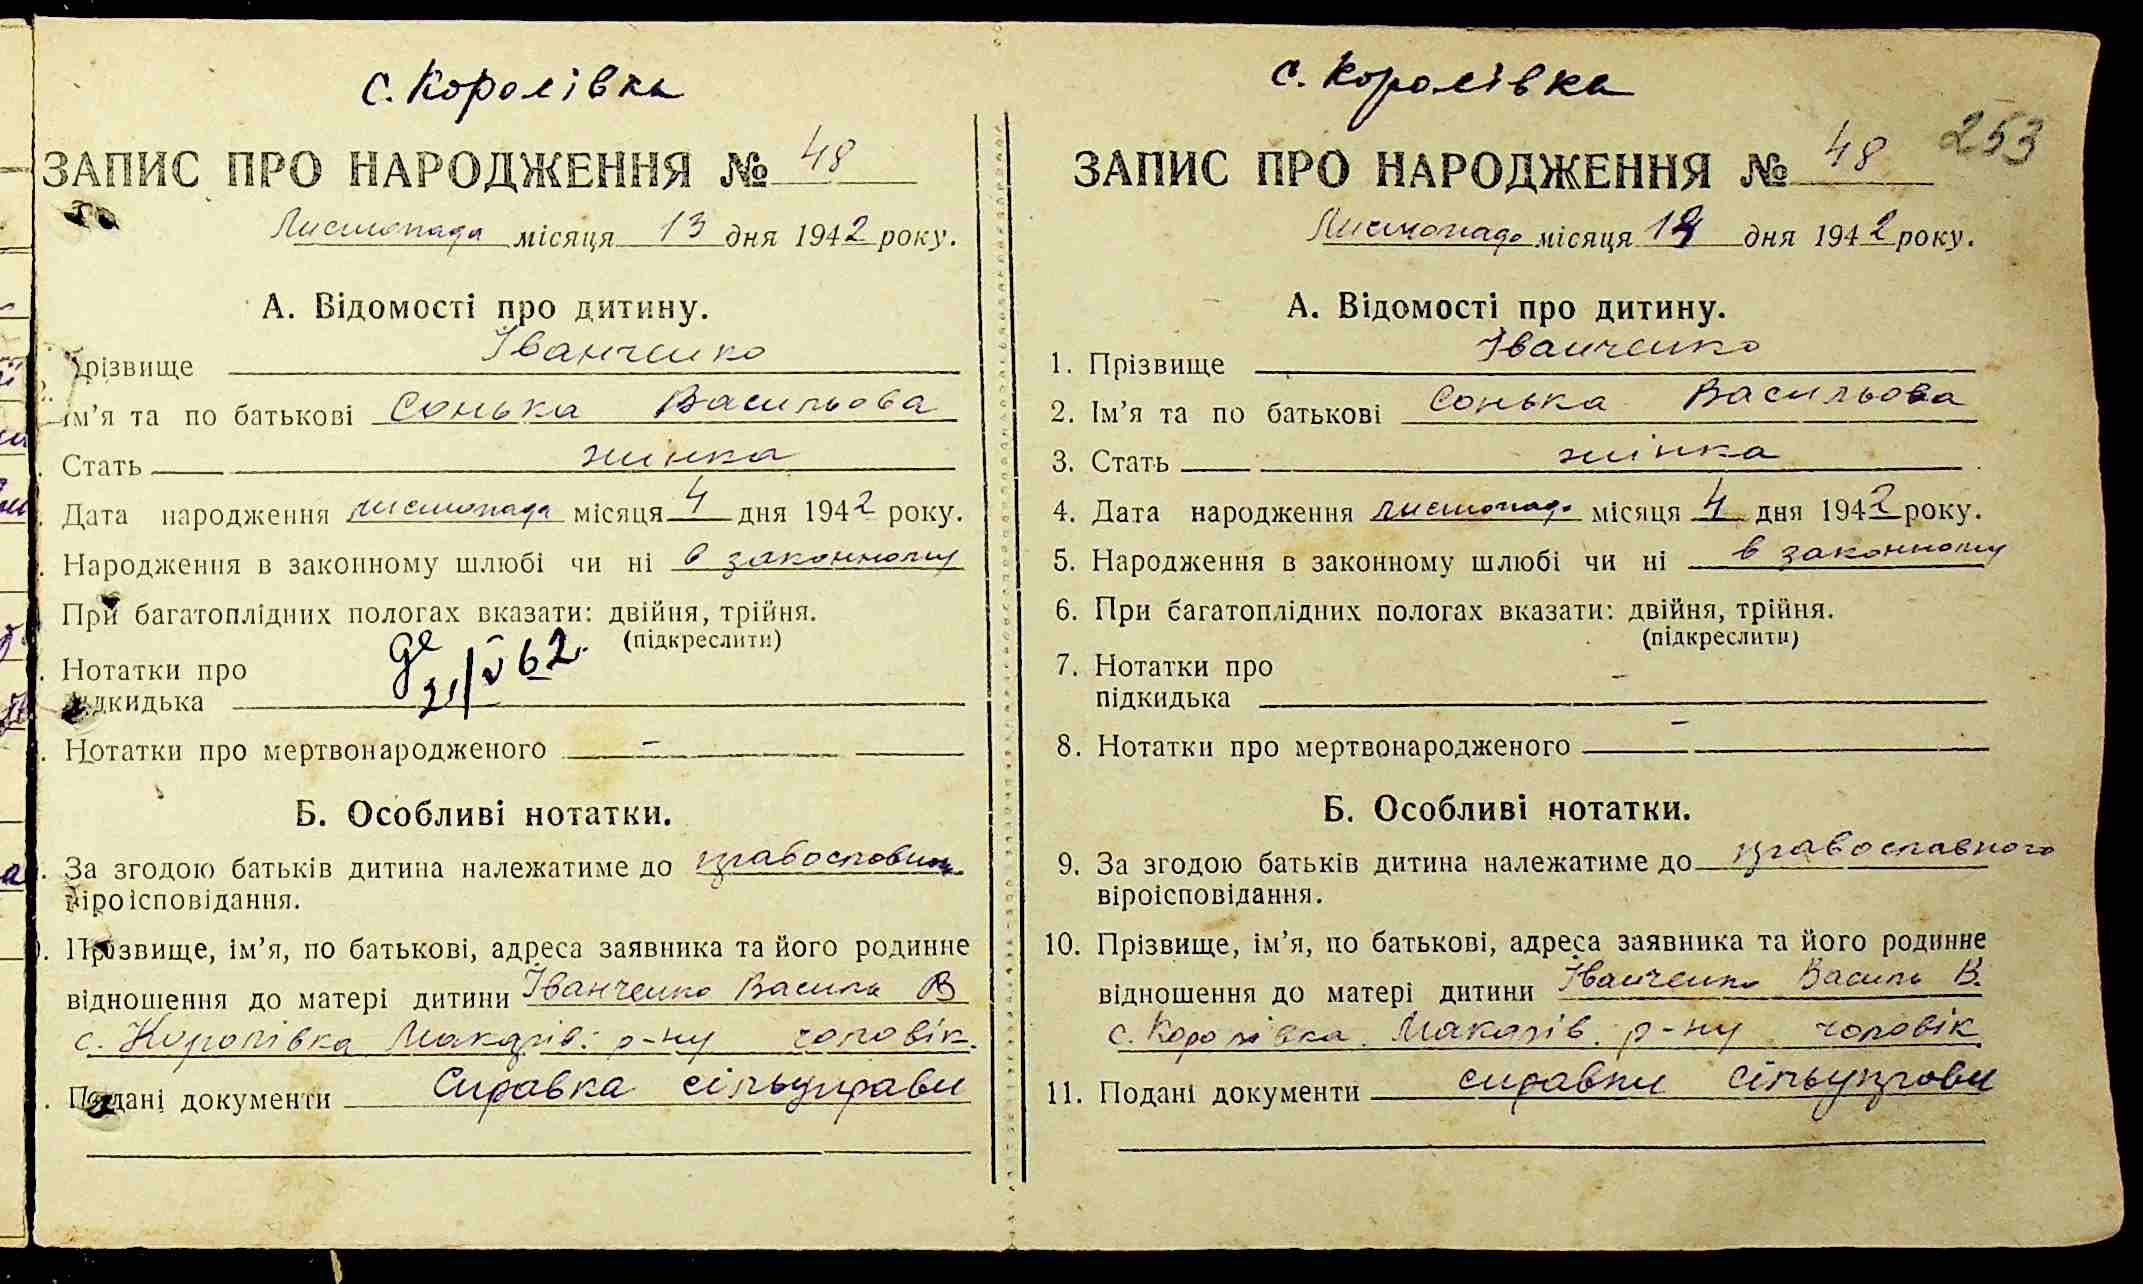 с. Королівка
ЗАПИС ПРО НАРОДЖЕННЯ № 48
Листопада місяця 13 дня 1942 року.
А. Відомості про дитину.
Прізвище Іванченко
Ім’я та по батькові Сонька Васильова
Стать жінка
Дата народження листопада місяця 4 дня 1942 року.
Народження в законному шлюбі чи ні в законному
При багатоплідних пологах вказати: двійня, трійня.
(підкреслити)
Нотатки про
підкидька
Нотатки про мертвонародженого –
Б. Особливі нотатки.
За згодою батьків дитина належатиме до
віроісповідання.
Прізвище, ім’я, по батькові, адреса заявника та його родинне
відношення до матері дитини Іванченко Василь В
с. Королівка Макарів. р-ну чоловік.
Подані документи справка сільуправи
с. Королівка
253
ЗАПИС ПРО НАРОДЖЕННЯ № 48
Листопада місяця дня 1942 року.
А. Відомості про дитину.
1. Прізвище Іванченко
2. Ім’я та по батькові Сонька Васильова
3. Стать жінка
4. Дата народження листопада місяця 4 дня 1942 року.
5. Народження в законному шлюбі чи ні в законному
6. При багатоплідних пологах вказати: двійня, трійня.
(підкреслити)
7. Нотатки про –
підкидька
8. Нотатки про мертвонародженого –
Б. Особливі нотатки.
9. За згодою батьків дитина належатиме до православного
віроісповідання.
10. Прізвище, ім’я, по батькові, адреса заявника та його родинне
відношення до матері дитини Іванченко Василь В.
с. Королівка. Макарів. р-ну чоловік
11. Подані документи справки сільуправи